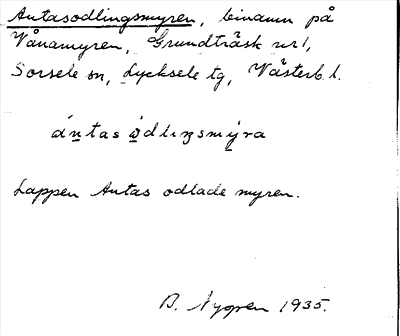 Antasodlingsmyren, binamn på
Vånamyren, Grundträsk nr 1,
Sorsele sn, Lycksele tg, Västerb. l.
ántas òdliŋsmỳra
Lappen Antas odlade myren.
B. Nygren 1935.